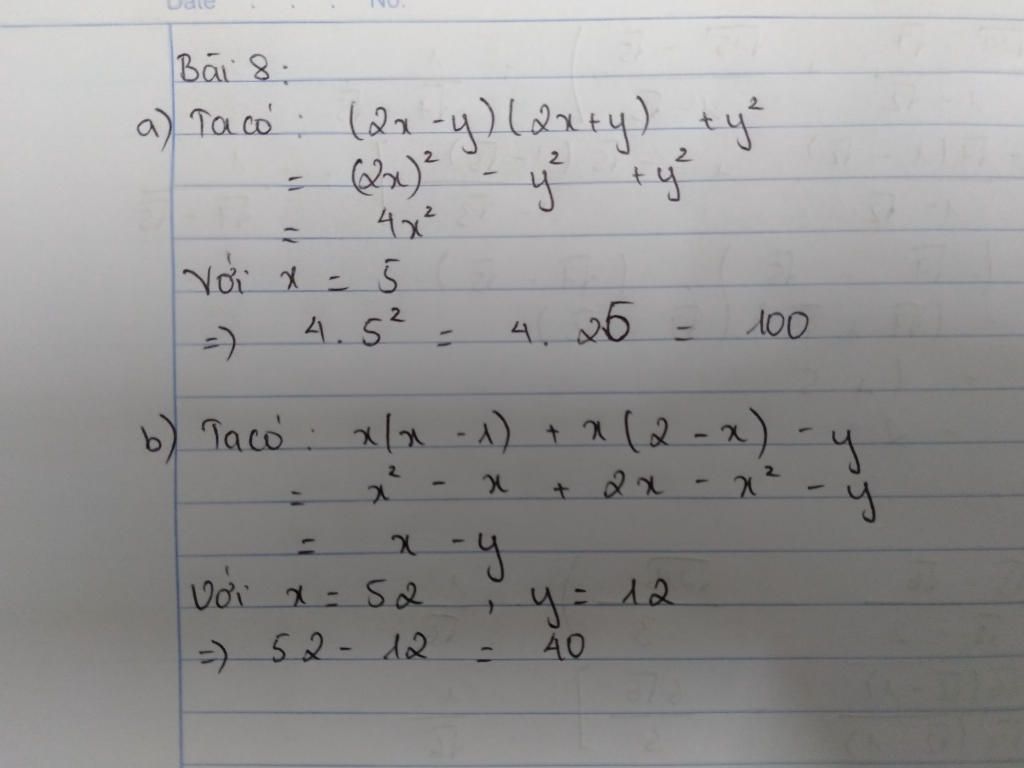 Date . . . No.
Bài 8:
a) Ta có: (2x - y)(2x + y) + y²
= (2x)² - y² + y²
= 4x²
Với x = 5
=> 4. 5² = 4. 25 = 100
b) Ta có: x(x - 1) + x(2 - x) - y
= x² - x + 2x - x² - y
= x - y
Với x = 52 , y = 12
=> 52 - 12 = 40